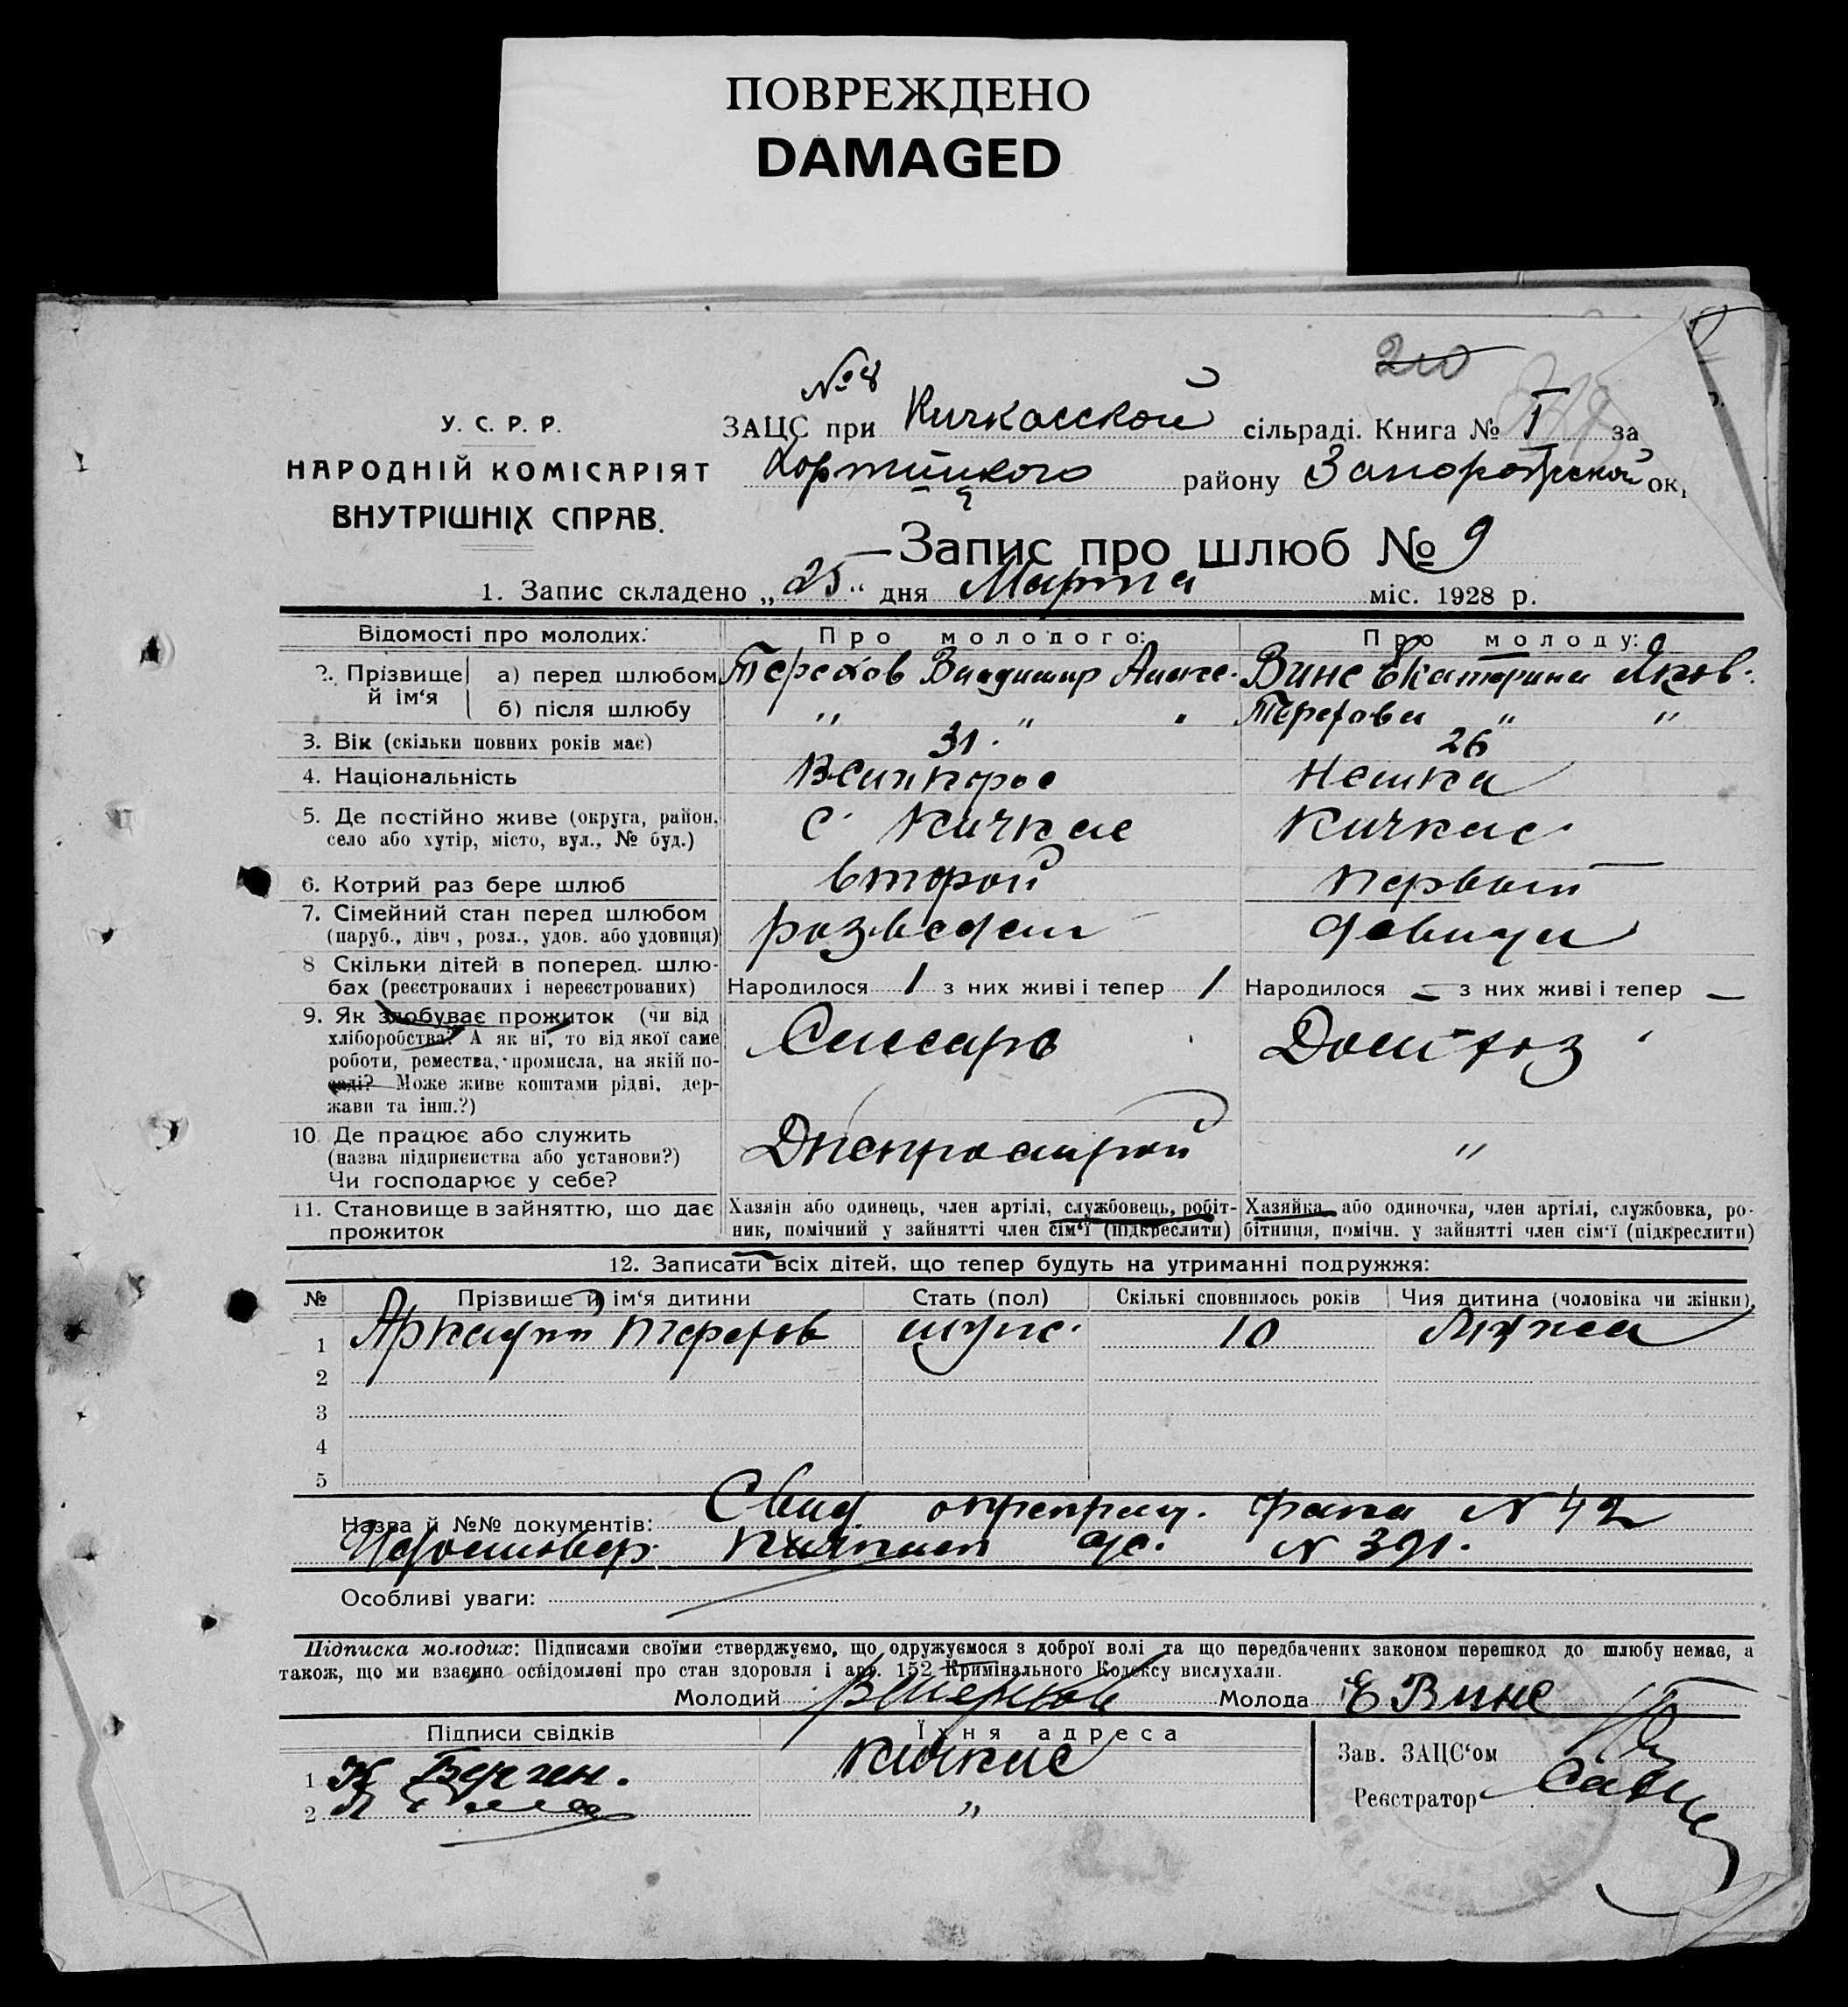 ПОВРЕЖДЕНО
DAMAGED
210
№ 8
У. С. Р. Р.
НАРОДНІЙ КОМІСАРІЯТ
ВНУТРІШНІХ СПРАВ.
ЗАЦС при Кичкасской сільраді. Книга № I за
Хортицкого району Запорожской ок
Запис про шлюб № 9
1. Запис складено „25“ дня Марта міс. 1928 р.
Відомості про молодих: Про молодого: Про молоду:
2. Прізвище й ім‘я а) перед шлюбом Терехов Владимир Алекс. Винс Екатерина Яков.
б) після шлюбу " " " Терехова " "
3. Вік (скільки повних років має) 31. 26
4. Національність Великорос Немка
5. Де постійно живе (округа, район, село або хутір, місто, вул., № буд.) С. Кичкас Кичкас
6. Котрий раз бере шлюб второй первый
7. Сімейний стан перед шлюбом (паруб., дівч., розл., удов. або удовиця) разведен девица
8 Скільки дітей в поперед. шлюбах (реєстрованих і нереєстрованих) Народилося 1 з них живі і тепер 1 Народилося – з них живі і тепер –
9. Як здобуває прожиток (чи від хліборобства? А як ні, то від якої саме роботи, ремества, промисла, на якій посаді? Може живе коштами рідні, держави та інш.?) Слесарь Дом-хоз
10. Де працює або служить (назва підприємства або установи?) Чи господарює у себе? Днепрострой "
11. Становище в зайняттю, що дає прожиток Хазяїн або одинець, член артілі, службовець, робітник, помічний у зайнятті член сім‘ї (підкреслити) Хазяйка або одиночка, член артілі, службовка, робітниця, помічн. у зайнятті член сім‘ї (підкреслити)
12. Записати всіх дітей, що тепер будуть на утриманні подружжя:
№ Прізвище й ім‘я дитини Стать (пол) Скількі сповнилось років Чия дитина (чоловіка чи жінки).
1 Аркадий Терехов муж. 10 Мужа
2
3
4
5
Назва й №№ документів: Свид. брака N 42
Удостовер. N 391.
Особливі уваги:
Підписка молодих: Підписами своїми стверджуємо, що одружуємося з доброї волі та що передбачених законом перешкод до шлюбу немає, а
також, що ми взаємно освідомлені про стан здоровля і арт. 152 Кримінального Кодексу вислухали.
Молодий ВТерехов Молода Е Винс
Підписи свідків Їхня адреса
1 К Берген. Кичкас
2 "
Зав. ЗАЦС‘ом
Реєстратор